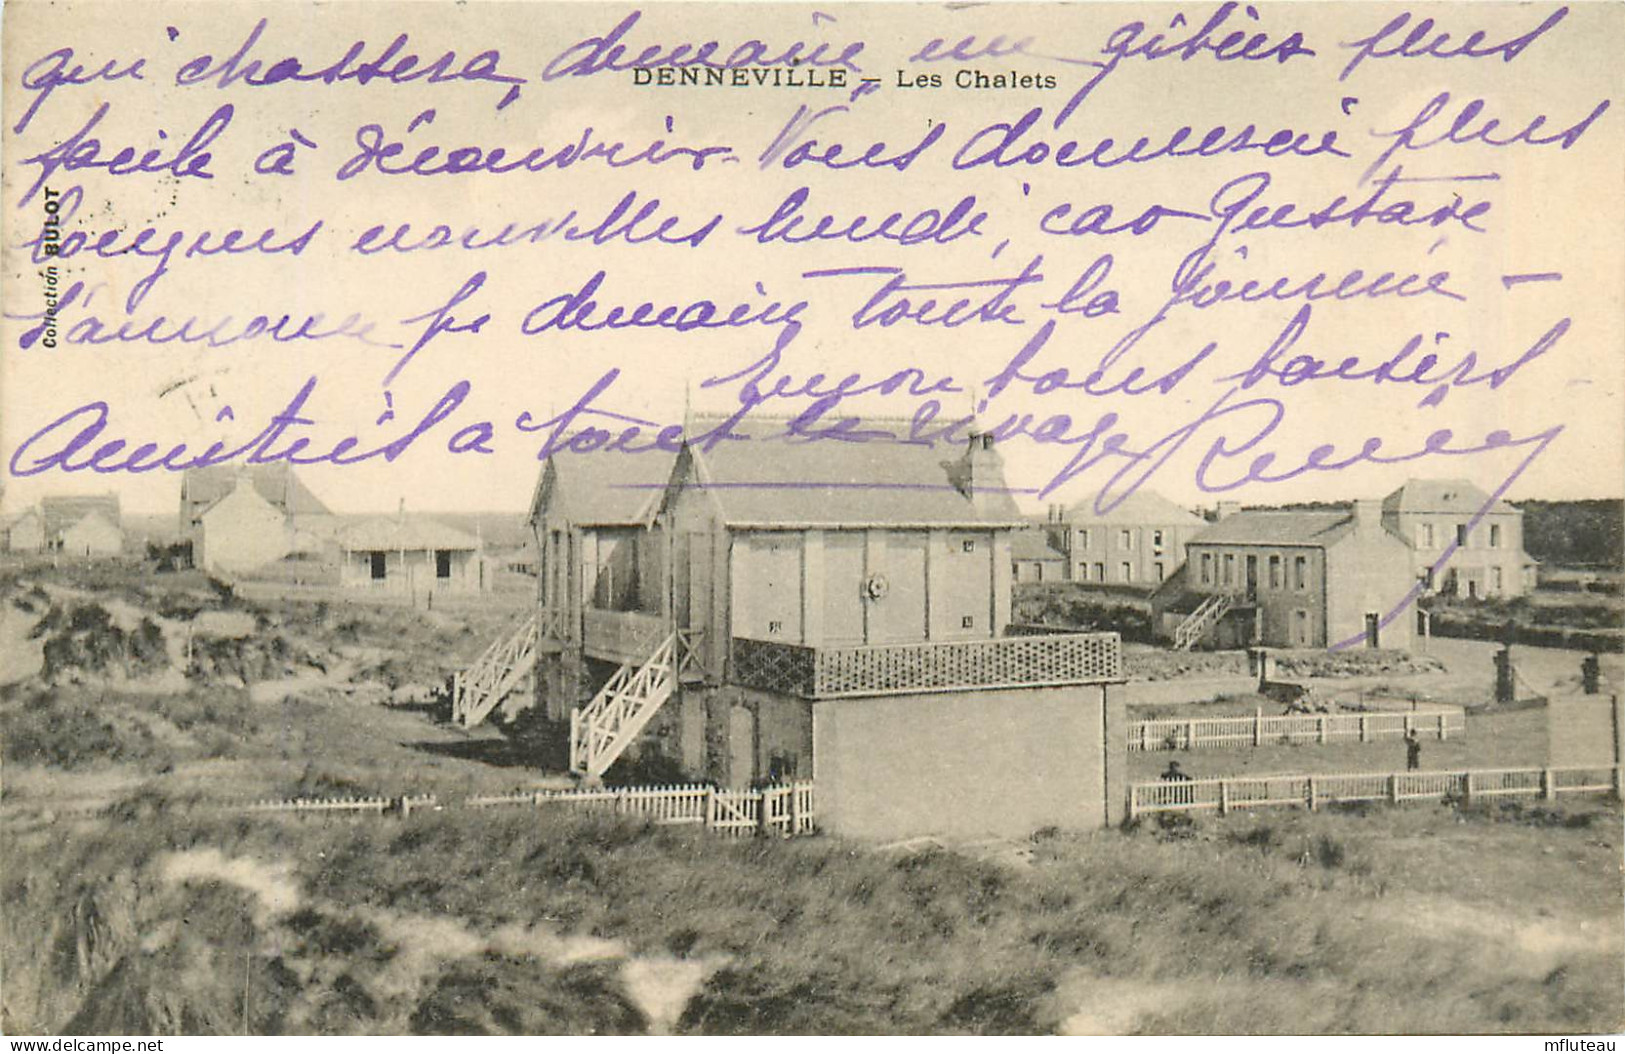 qui chassera, demain, un gibier plus
DENNEVILLE — Les Chalets
facile à découvrir. Vous donnerai plus
longues nouvelles lundi, car Gustave
demain toute la journée —
Envoi bons baisers
Amitiés à tous le rivage
Collection BULOT
www.delcampe.net
mfluteau